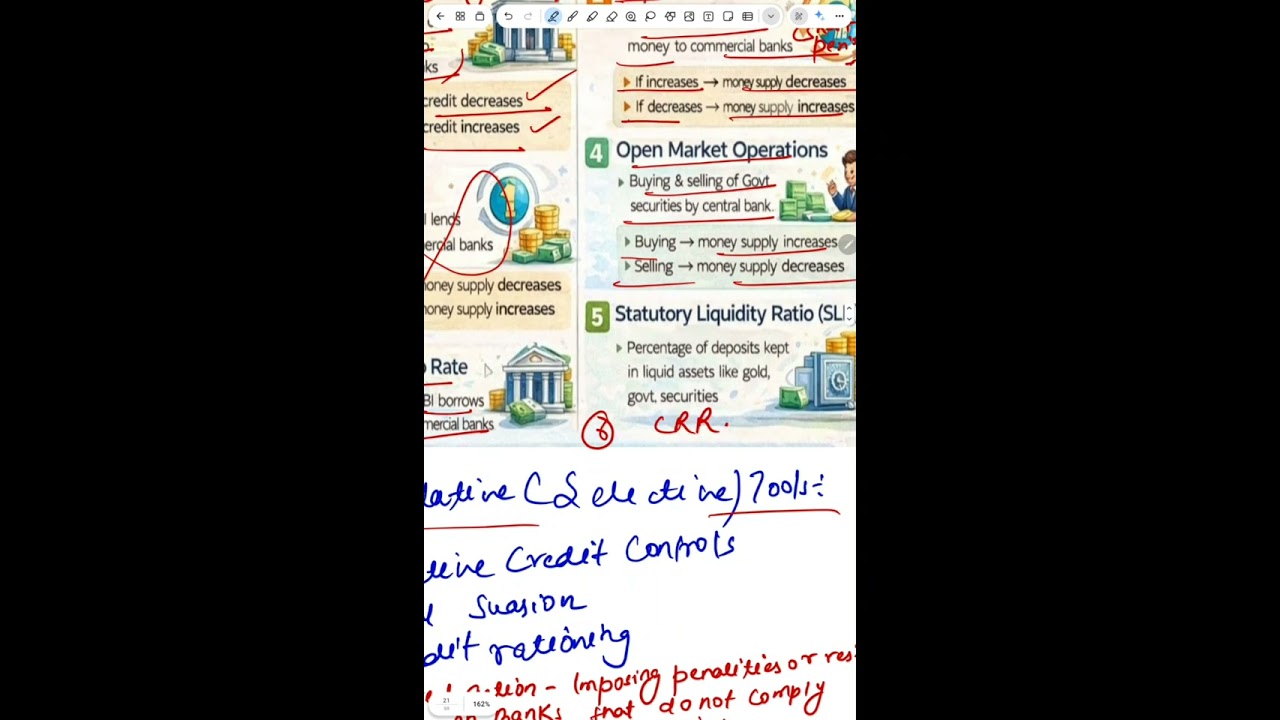 money to commercial banks
pen
If increases → money supply decreases
If decreases → money supply increases
ks
credit decreases
credit increases
4 Open Market Operations
Buying & selling of Govt
securities by central bank.
Buying → money supply increases
Selling → money supply decreases
lends
ercial banks
oney supply decreases
oney supply increases
5 Statutory Liquidity Ratio (SL
Percentage of deposits kept
in liquid assets like gold,
govt. securities
Rate
BI borrows
mercial banks
CRR.
lative (Selective) Tools:
Credit Controls
Suasion
rationing
- Imposing penalities or res
Banks that do not comply
21
162%